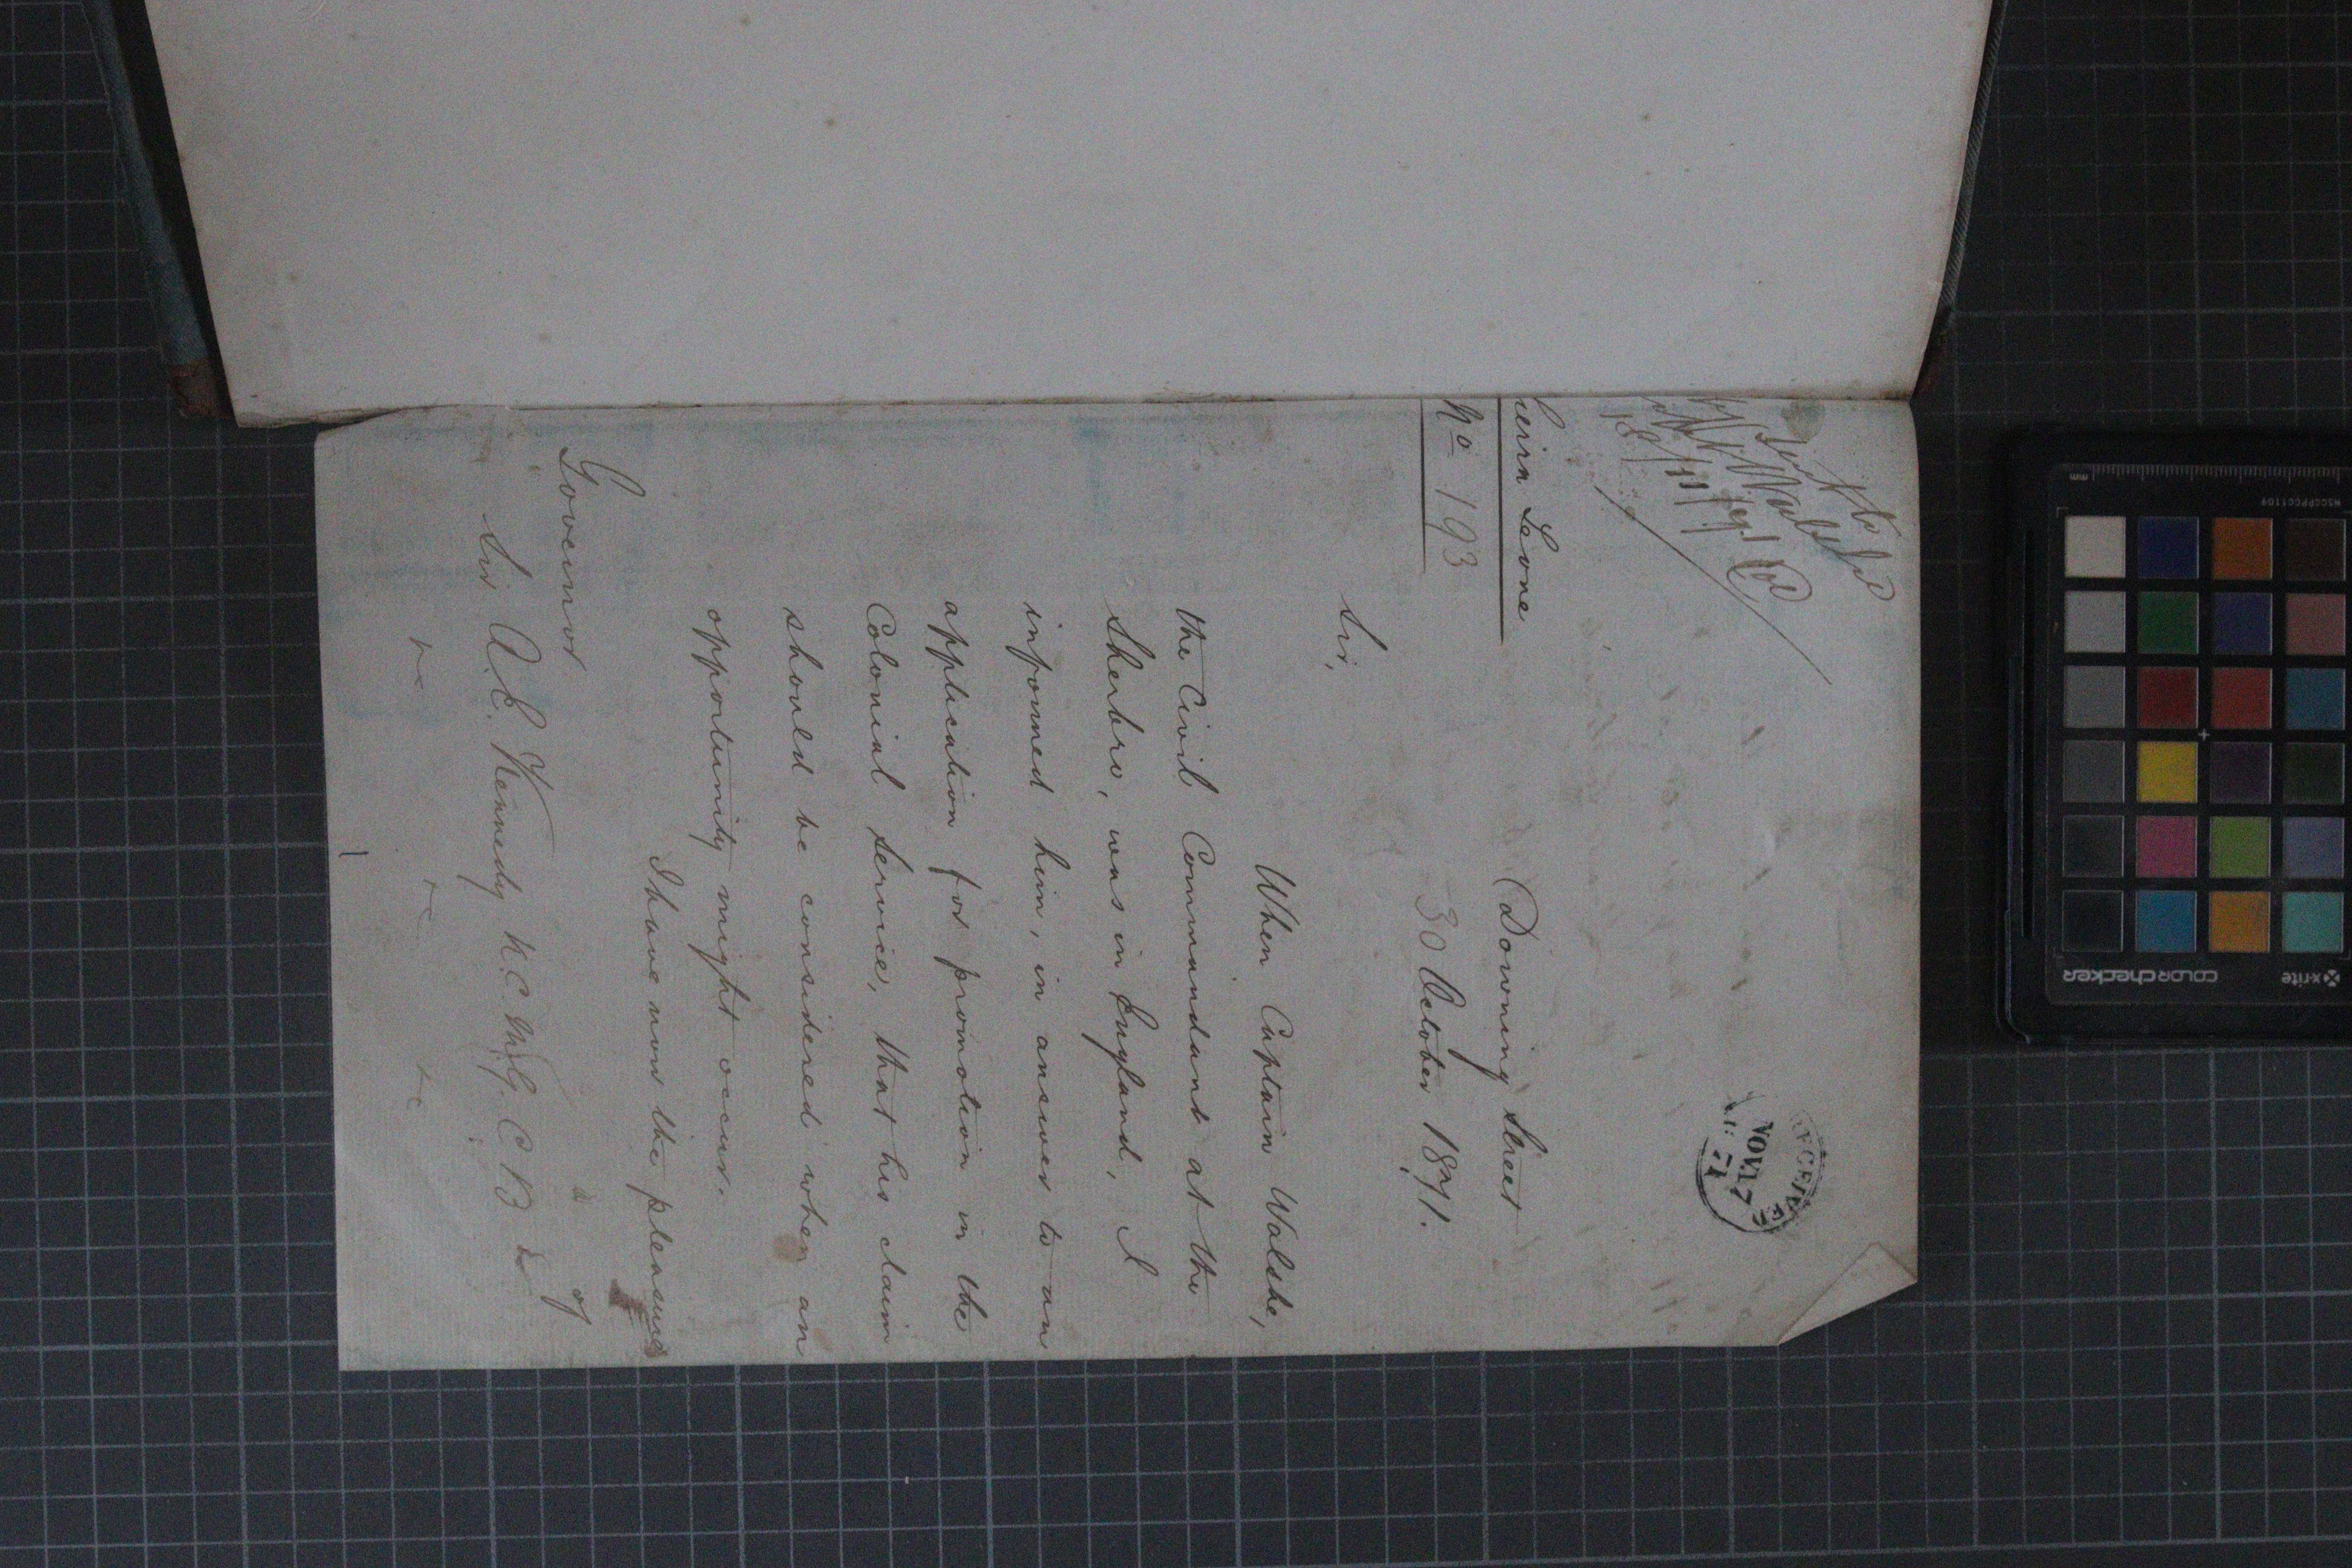 RECEIVED
NOV 17
71
18/11/71
Sierra Leone
No 193
Downing Street
30 October 1871.
Sir,
When Captain Walshe,
the Civil Commandant at the
Sherbro, was in England, I
informed him, in answer to an
application for promotion in the
Colonial Service, that his claim
should be considered when an
opportunity might occur.
I have now the pleasure
of
Governor
Sir A. E. Kennedy K.C.M.G. C B
&c &c &c
x-rite
colorchecker
MSCCPPCC1109
mm